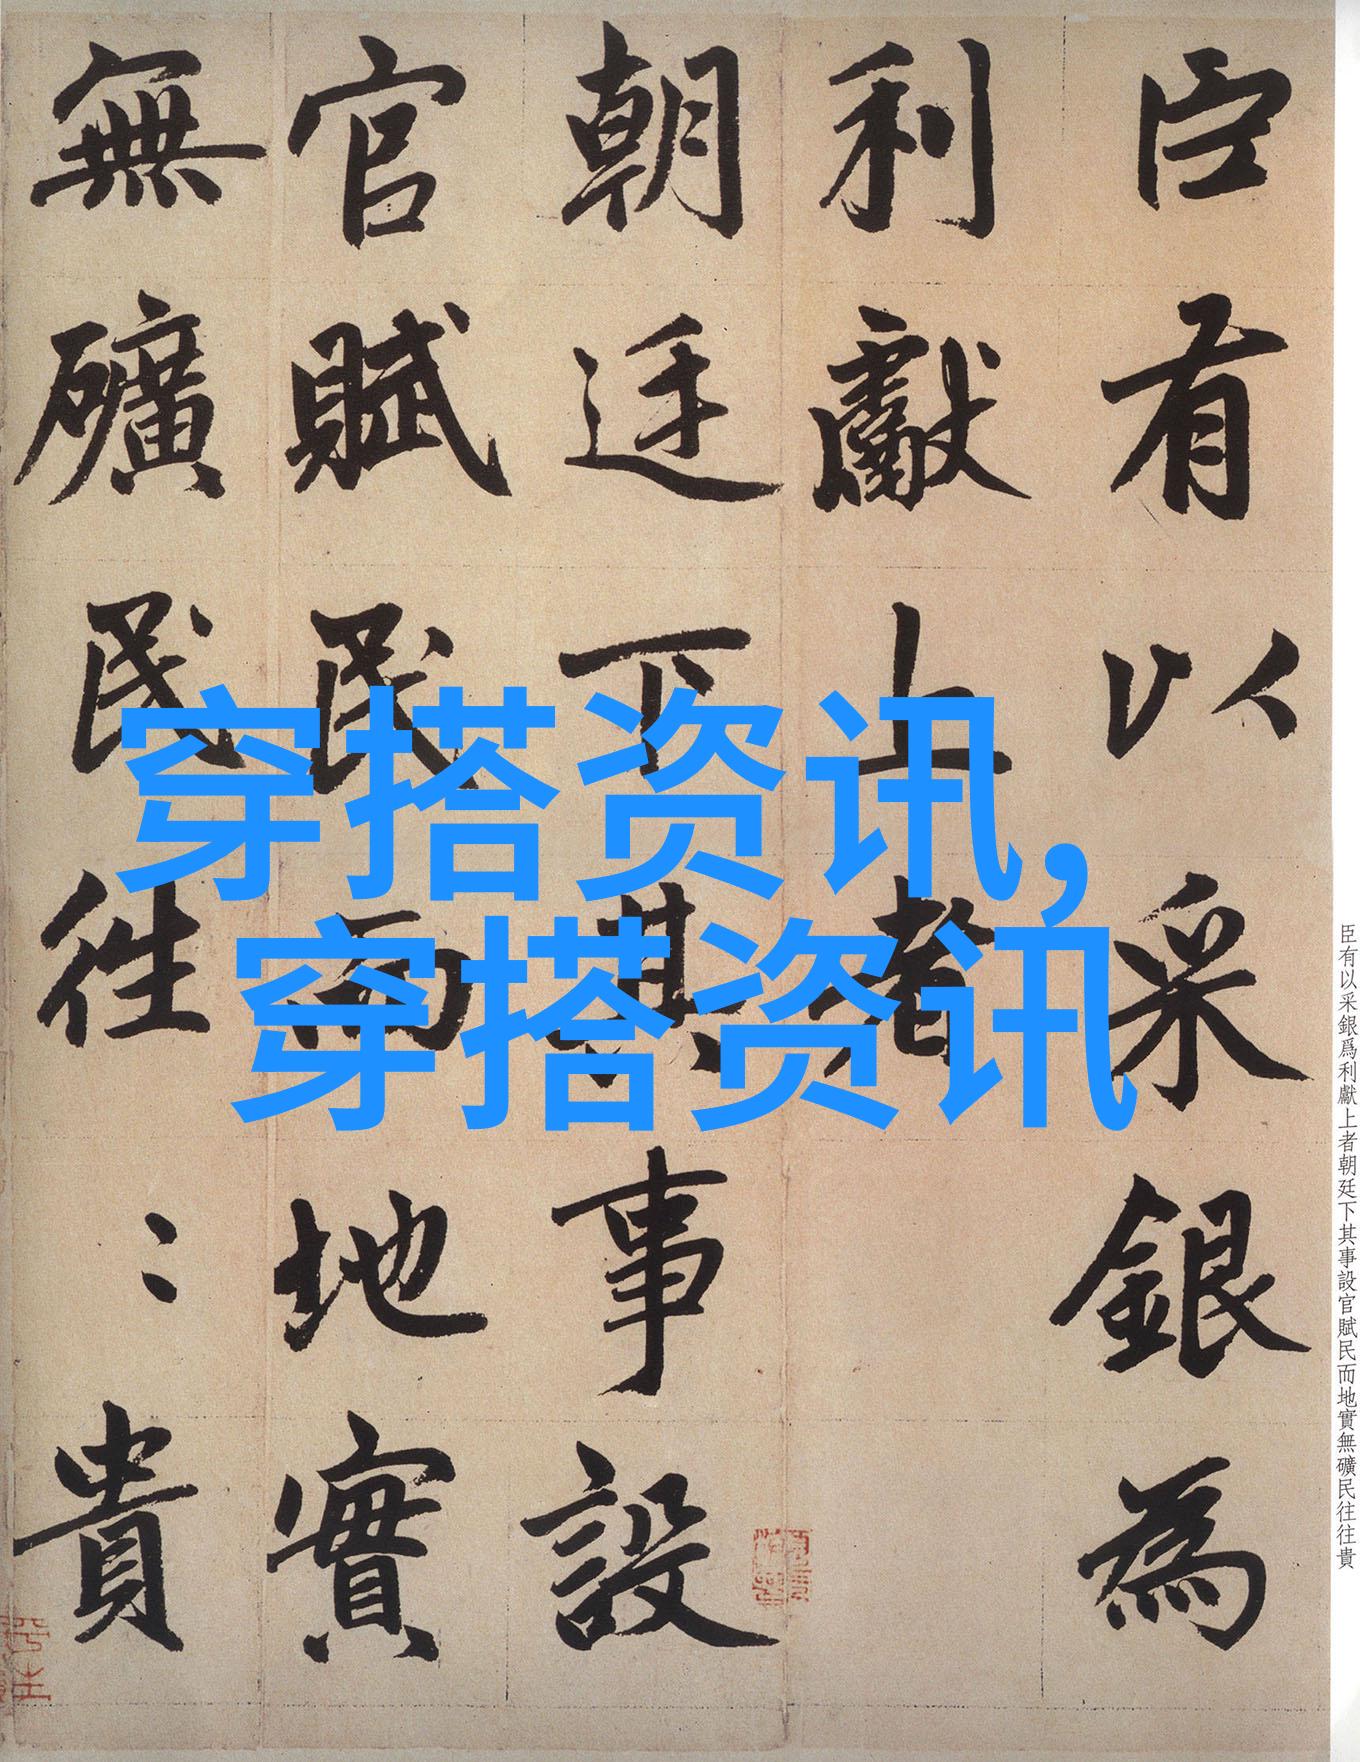 臣有以采銀為
利獻上者
朝廷下其事設
官賦民而地實
無礦民往〻貴
穿搭资讯,
穿搭资讯
臣有以采銀爲利獻上者朝廷下其事設官賦民而地實無礦民往往貴